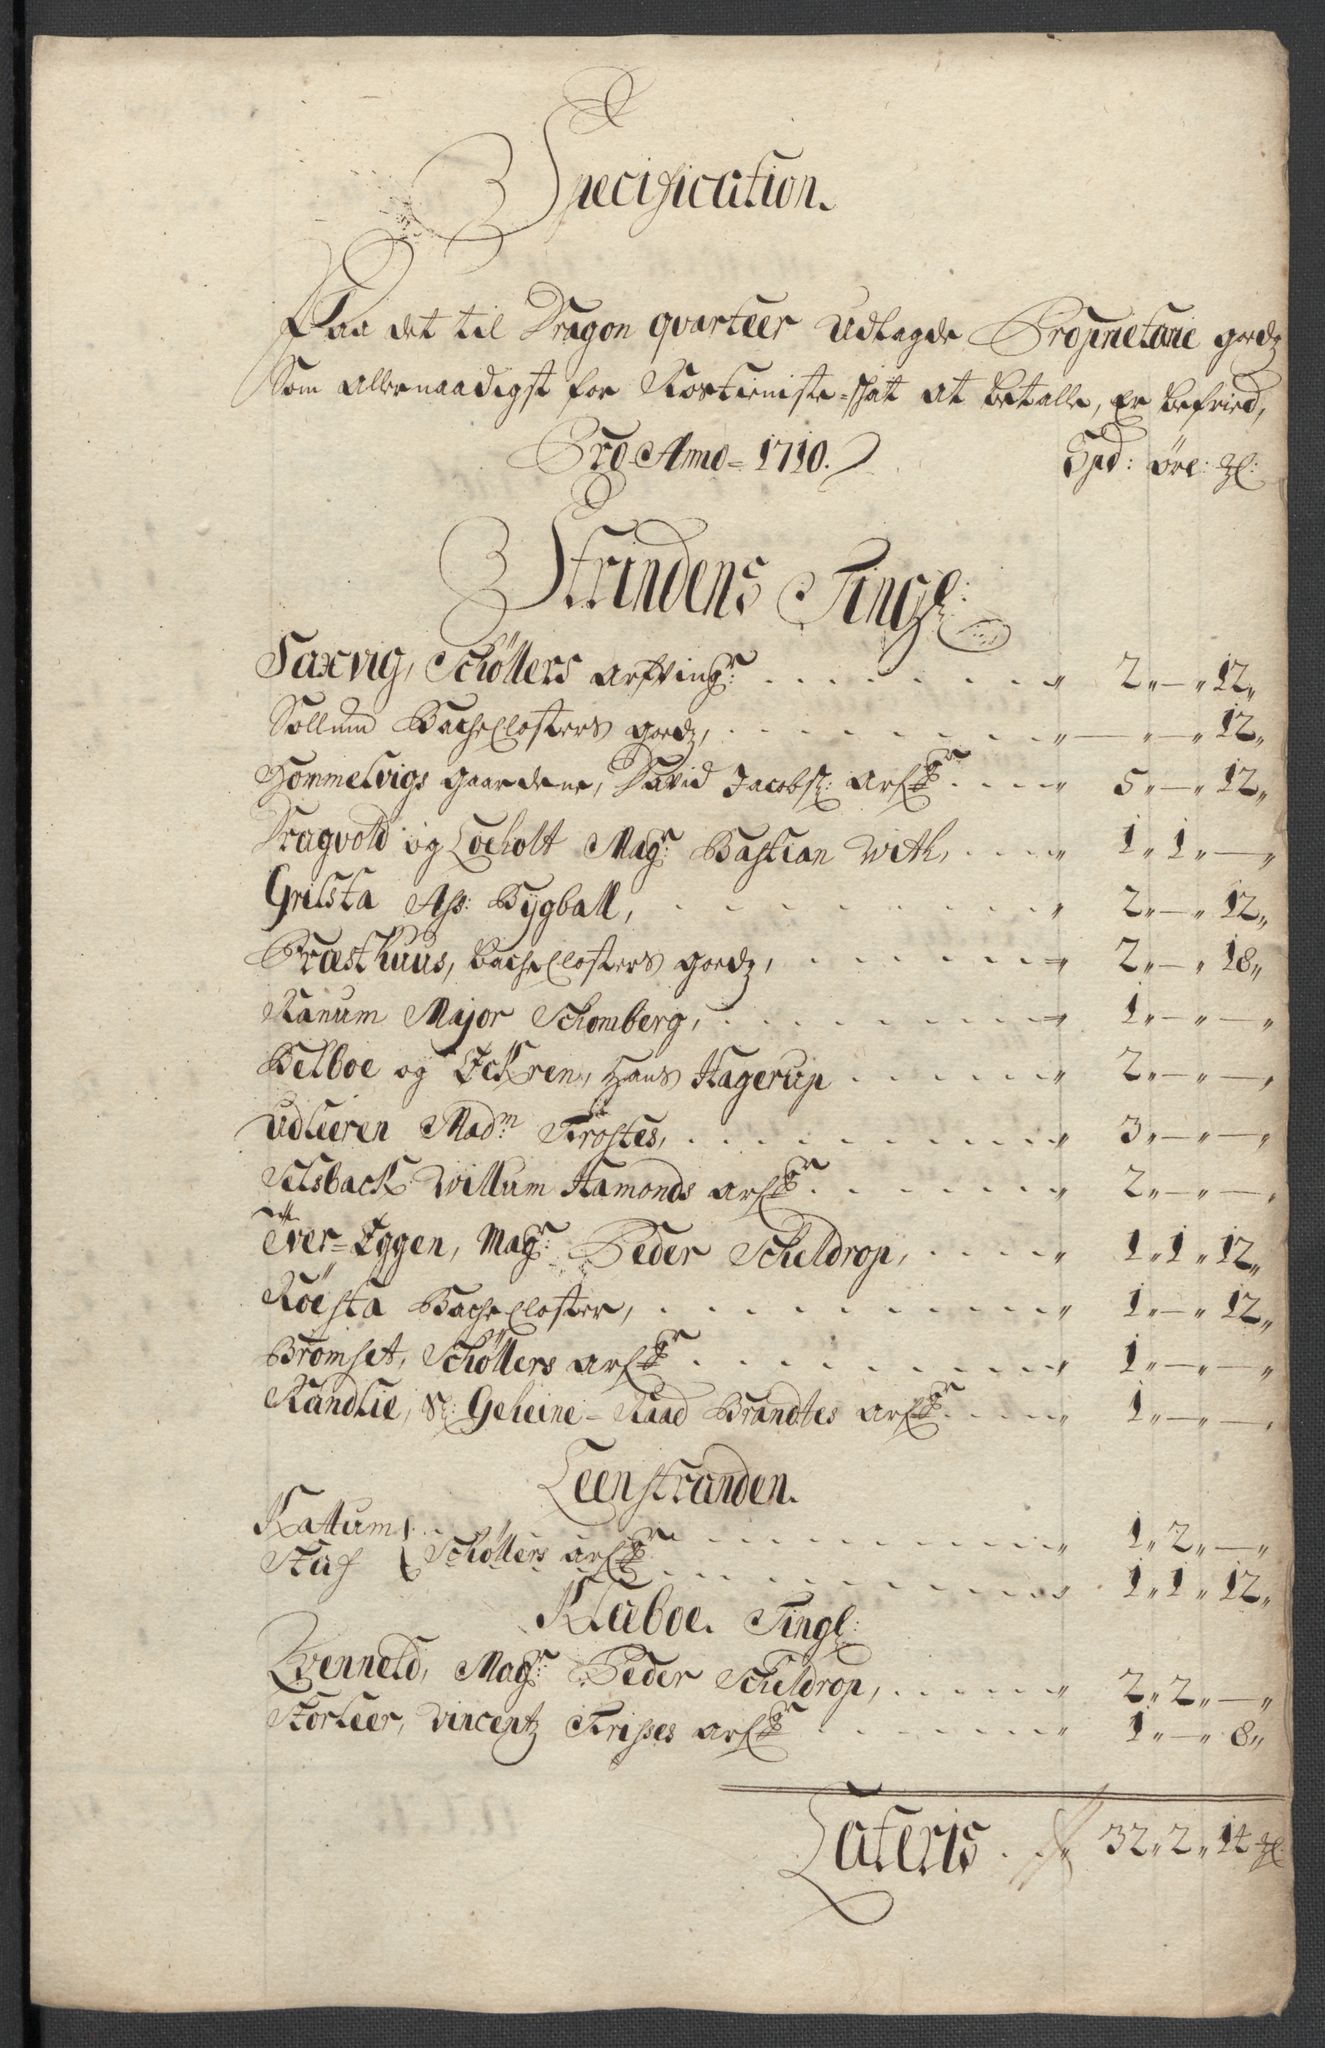 Specification.
Paa det til Dragon quarteer Udlagde Proprietarie goedz
Som allernaadigst for Rostieniste-skat at betalle, Er befried,
Pro Anno = 1710. Spd: øre: ꝫl:
Strindens Tingl:
Saxvig, Schöllers arfving:r 2 „ — „ 12 „
Sollum Bache Closters goedz, — „ — „ 12 „
Hommelvigs gaardene, David Jacobsl: arf:gr 5 „ — „ 12 „
Dragvold og Loeholt Mag:r Bastian With, 1 „ 1 „ — „
Grilsta Ass: Bygball, 2 „ — „ 12 „
Præsthuus, Bache Closters goedz, 2 „ — „ 18 „
Ranum Major Schomberg, 1 „ — „ — „
Belboe og Eckren, Hans Hagerup 2 „ — „ — „
Udleeren Mad:m Tröstes, 3 „ — „ — „
Selsback Willum Hamonds arf:gr 2 „ — „ — „
Över = Eggen, Mag:r Peder Scheldrop, 1 „ 1 „ 12 „
Röesta Bache Closter, 1 „ — „ 12 „
Bromset, Schöllers arf:gr 1 „ — „ — „
Randlie, Sl: Geheime - Raad Brandtes arf:gr 1 „ — „ — „
Leenstranden.
Kattum 1 „ 2 „ — „
Staf } Schöllers arf:gr 1 „ 1 „ 12 „
Klæboe. Tingl:
Qvenneld, Mag:r Peder Scheldrop, 2 „ 2 „ — „
Storleer, Vincentz Trisses arf:gr 1 „ — „ 8 „
Lateris 32 „ 2 „ 14 ꝫl